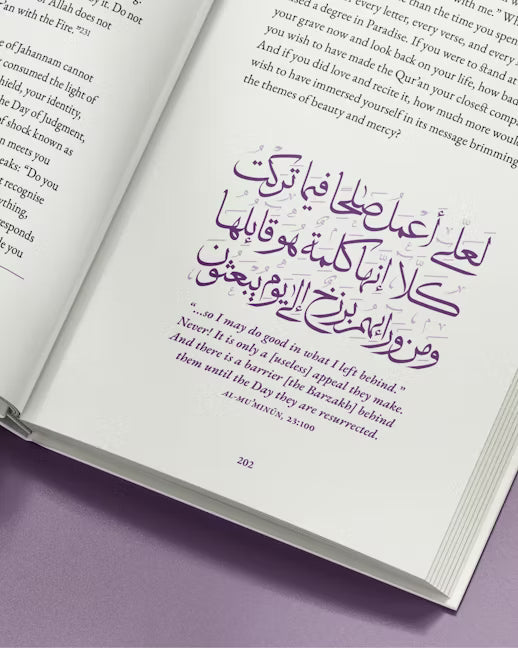 it. Do not
of Allah does not
'an with the Fire."231
e of Jahannam cannot
consumed the light of
hield, your identity,
he Day of Judgment,
of shock known as
n meets you
eaks: "Do you
t recognise
ything,
responds
le you
than the time you spen
every letter, every verse, and every
sed a degree in Paradise. If you were to stand at
your grave now and look back on your life, how bad
you wish to have made the Qur'an your closest comp
And if you did love and recite it, how much more woul
wish to have immersed yourself in its message brimming
the themes of beauty and mercy?
لعلي أعمل صلحا فيما تركت
كلا إنها كلمة هو قائلها
ومن ورائهم برزخ إلى يوم يبعثون
"...so I may do good in what I left behind."
Never! It is only a [useless] appeal they make.
And there is a barrier [the Barzakh] behind
them until the Day they are resurrected.
AL-MU'MINŪN, 23:100
202